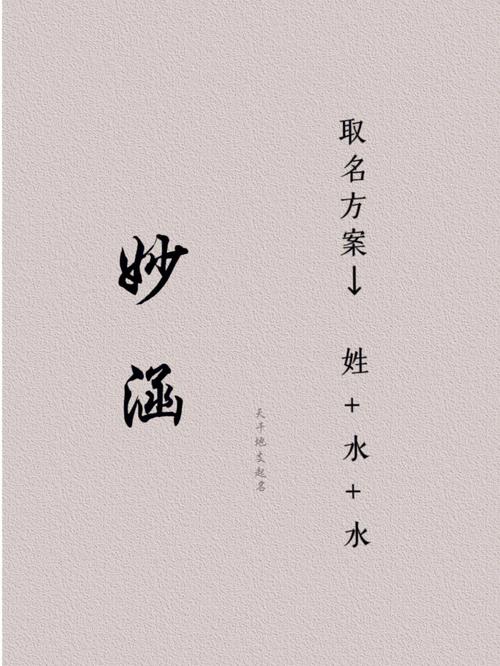 取名方案↓ 姓+水+水
天干地支起名
妙涵